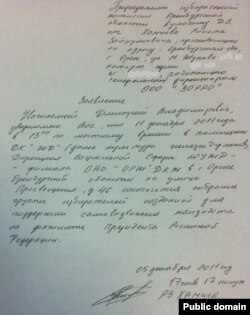 Председателю избирательной
комиссии Оренбургской
области Кулагину Д.В.
от Хамиева Рэтма
Зайнулловича, проживающего
по адресу: Оренбургская обл.
г. Орск, ул. М. Жукова
паспорт серии
работающего
генеральным директором
ООО "ЗОРРО"
Заявление
Уважаемый Дмитрий Владимирович,
уведомляю Вас, что 11 декабря 2011 года
в 13:00 по местному времени в помещении
ДК "ЖД" (дома культуры железнодорожников),
Дирекция социальной сферы ЮУЖД-
филиала ОАО "РЖД" ДКЖ в г. Орске
Оренбургской области по улице
Просвещения, д. 46 состоится собрание
группы избирателей созданной для
поддержки самовыдвижения кандидата
на должность Президента Российской
Федерации.
05 декабря 2011 год
17 часов 17 минут
Р.З. ХАМИЕВ
Public domain